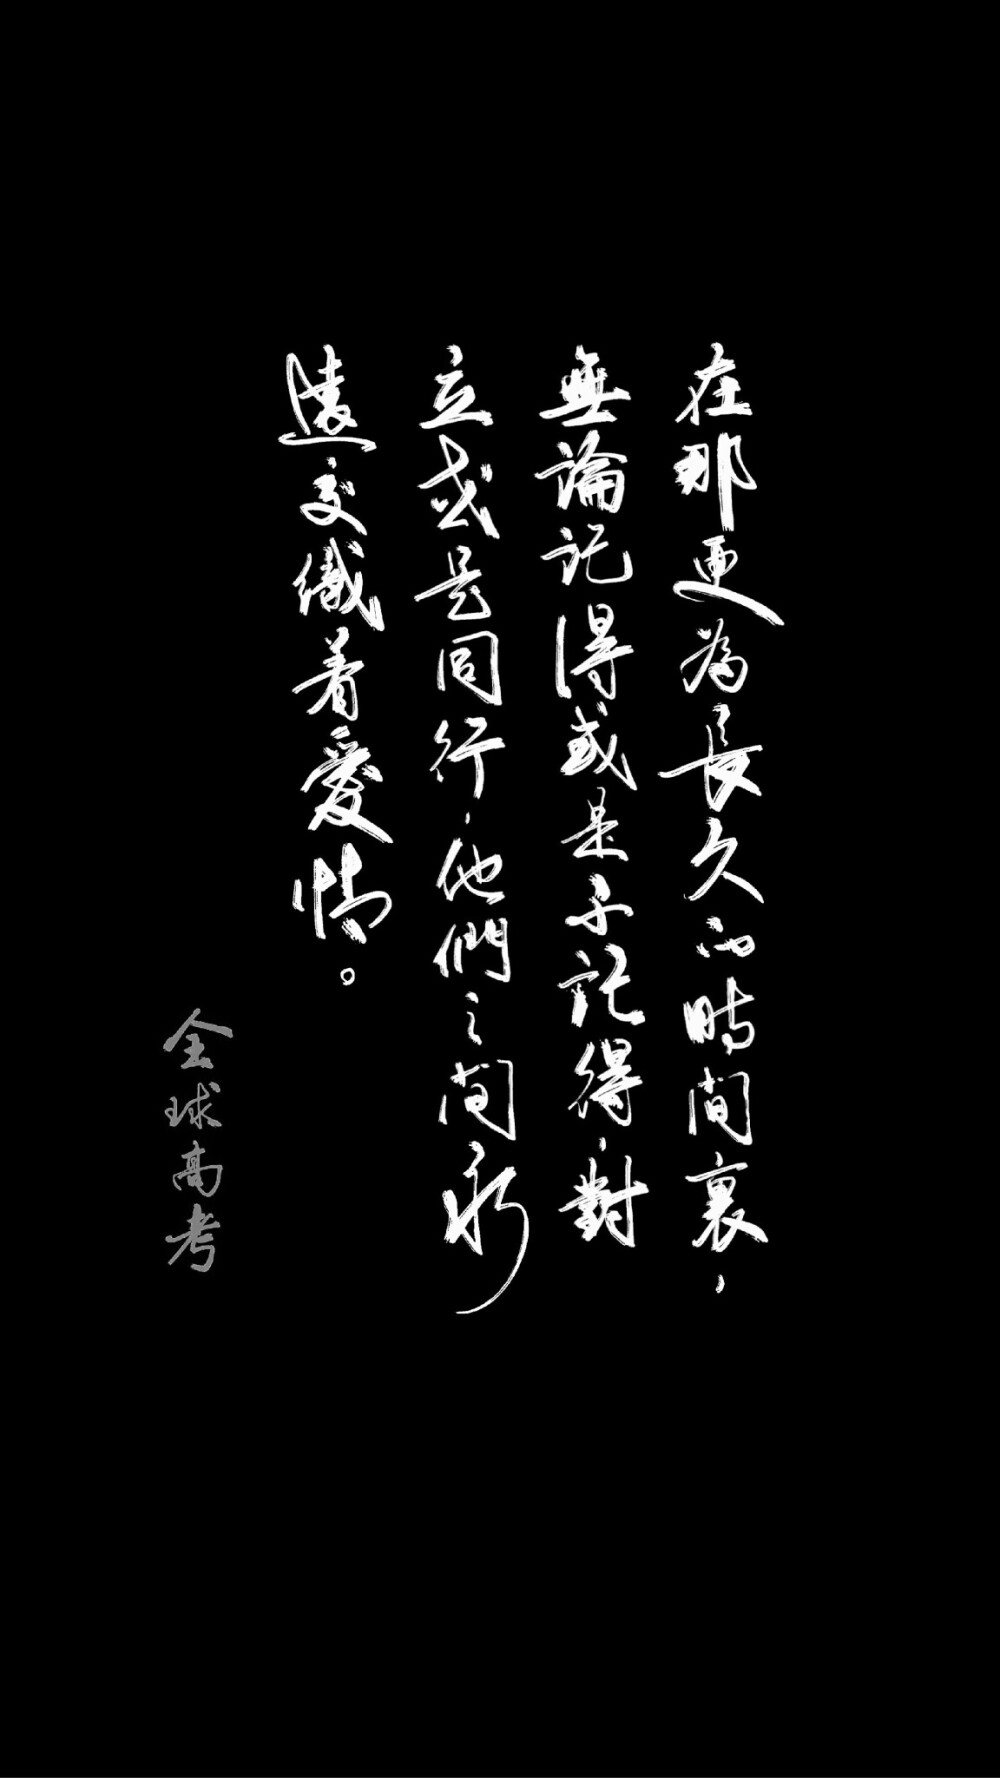 在那更為長久的時間裏，
無論記得或是不記得，對
立或是同行，他們之間永
遠交織着愛情。
全球高考